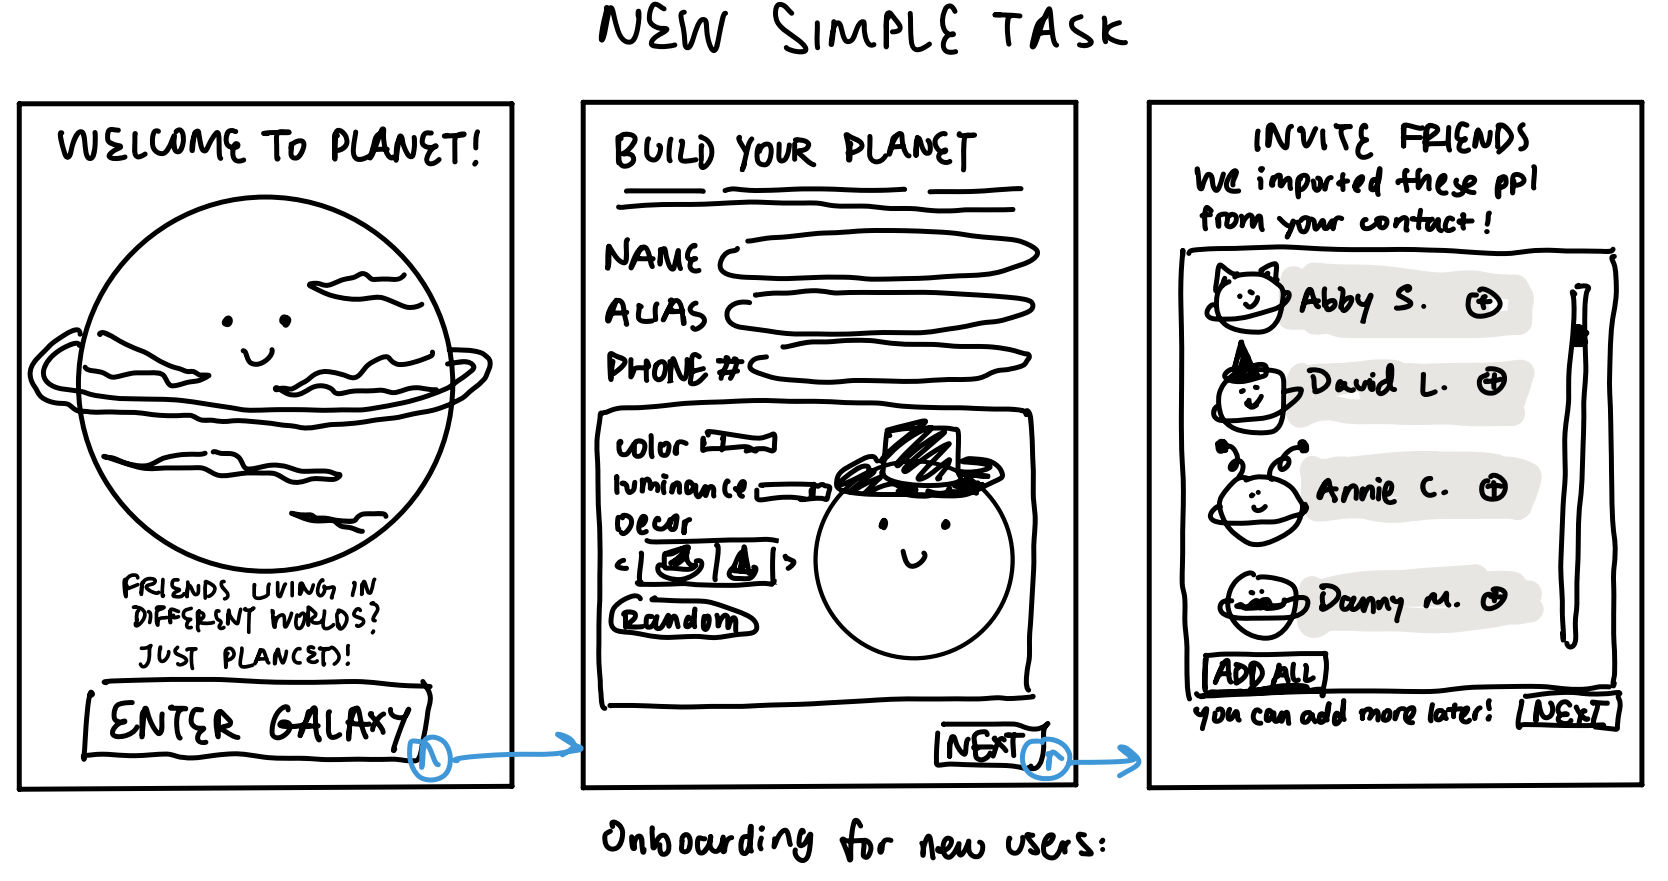 NEW SIMPLE TASK
WELCOME TO PLANET!
FRIENDS LIVING IN
DIFFERENT WORLDS?
JUST PLAN(ET)!
ENTER GALAXY
BUILD YOUR PLANET
NAME
ALIAS
PHONE #
color
luminance
Decor
< >
Random
NEXT
INVITE FRIENDS
We imported these ppl
from your contact!
Abby S. +
David L. +
Annie C. +
Danny M. +
ADD ALL
you can add more later! NEXT
Onboarding for new users: